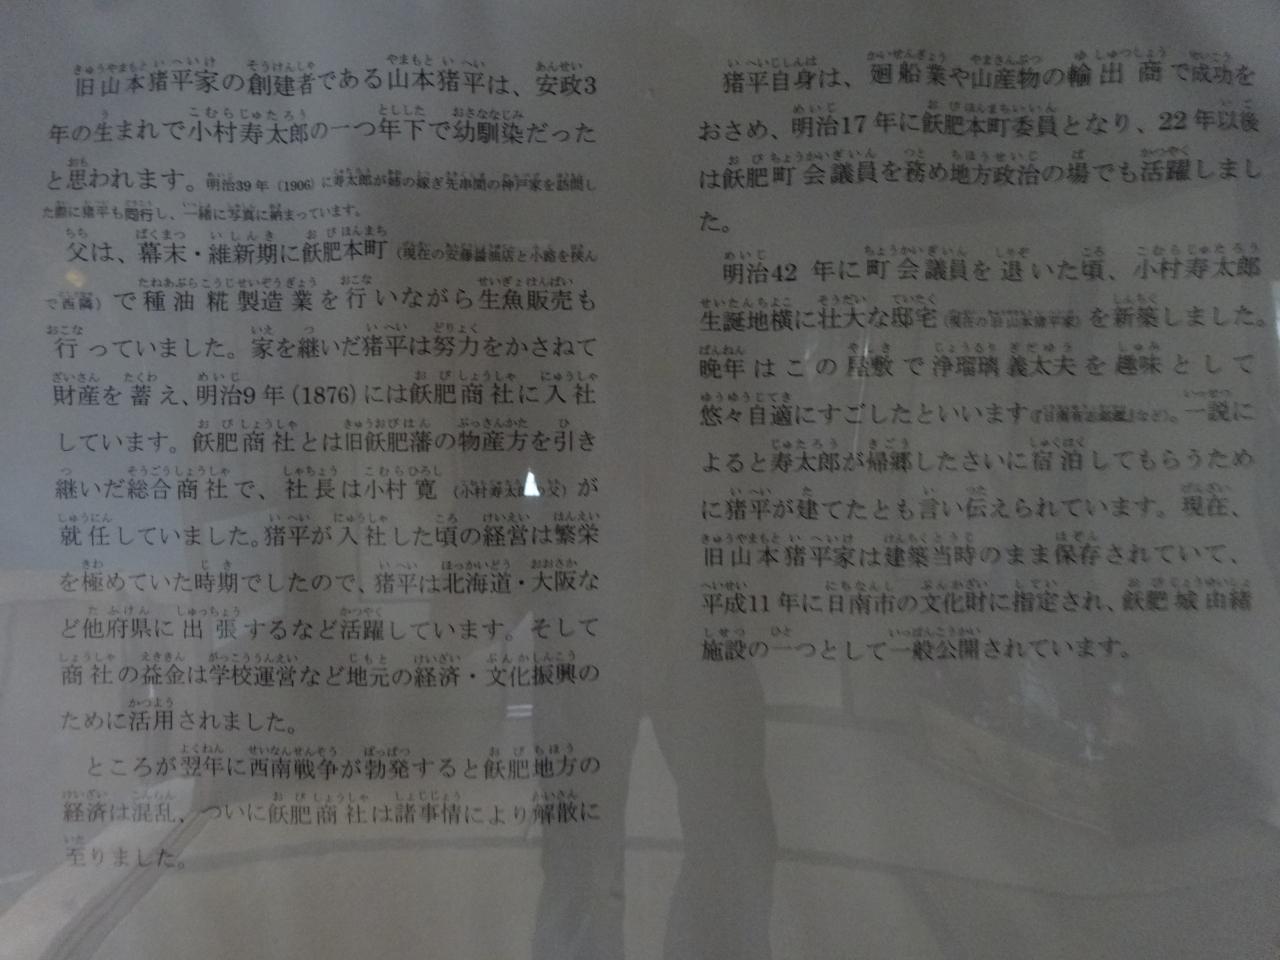 旧山本猪平家の創建者である山本猪平は、安政3
年の生まれで小村寿太郎の一つ年下で幼馴染だった
と思われます。明治39年（1906）に寿太郎が姉の嫁ぎ先串間の神戸家を訪問し
た際に猪平も同行し、一緒に写真に納まっています。
父は、幕末・維新期に飫肥本町（現在の安藤醤油店と小路を挟ん
で西隣）で種油糀製造業を行いながら生魚販売も
行っていました。家を継いだ猪平は努力をかさねて
財産を蓄え、明治9年（1876）には飫肥商社に入社
しています。飫肥商社とは旧飫肥藩の物産方を引き
継いだ総合商社で、社長は小村寛（小村寿太郎の父）が
就任していました。猪平が入社した頃の経営は繁栄
を極めていた時期でしたので、猪平は北海道・大阪な
ど他府県に出張するなど活躍しています。そして
商社の益金は学校運営など地元の経済・文化振興の
ために活用されました。
ところが翌年に西南戦争が勃発すると飫肥地方の
経済は混乱、ついに飫肥商社は諸事情により解散に
至りました。
猪平自身は、廻船業や山産物の輸出商で成功を
おさめ、明治17年に飫肥本町委員となり、22年以後
は飫肥町会議員を務め地方政治の場でも活躍しまし
た。
明治42年に町会議員を退いた頃、小村寿太郎
生誕地横に壮大な邸宅（現在の旧山本猪平家）を新築しました。
晩年はこの屋敷で浄瑠璃義太夫を趣味として
悠々自適にすごしたといいます（など）。一説に
よると寿太郎が帰郷したさいに宿泊してもらうため
に猪平が建てたとも言い伝えられています。現在、
旧山本猪平家は建築当時のまま保存されていて、
平成11年に日南市の文化財に指定され、飫肥城由緒
施設の一つとして一般公開されています。